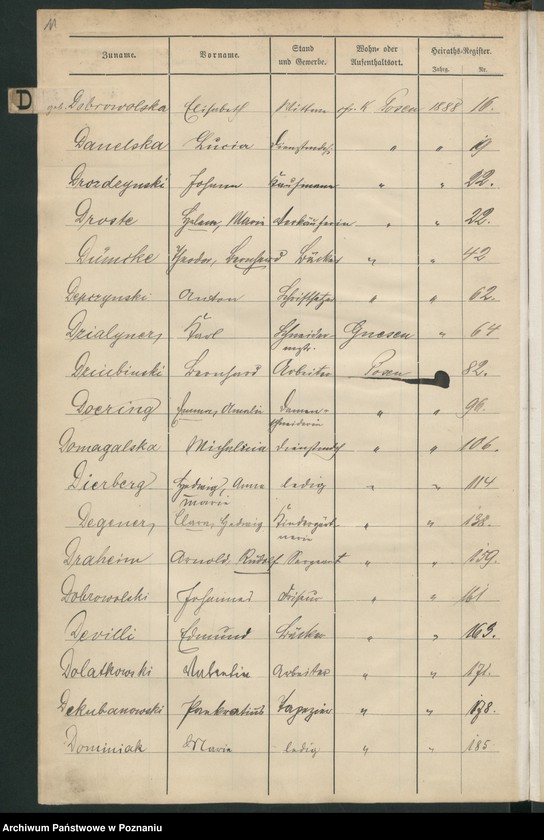 11
Zuname. Vorname. Stand und Gewerbe. Wohn- oder Aufenthaltsort. Heiraths-Register.
Jahrg. Nr.
D
geb. Dobrowolska Elisabeth Wittwe Posen 1888 16.
Danelska Lucia Dienstmdch. " " 19
Drozdzynski Johann Kaufmann " " 22.
Droste Helene, Marie Verkäuferin " " 22.
Dümcke Theodor, Bernhard Bäcker " " 42
Depczynski Anton Schriftsetzer " " 62.
Dzialyner, Karl Schneider- Gnesen " 64
mstr.
Dziubinski Bernhard Arbeiter Posen 82.
Doering Emma, Amalie Damen- " " 96.
schneiderin
Domagalska Michalina Dienstmdch " " 106.
Dierberg Hedwig, Anna ledig " " 114
Marie
Degener, Clara, Hedwig Kindergärt- " " 138.
nerin
Draheim Arnold, Rudolf Sergeant " " 159.
Dobrowolski Johannes Friseur " " 161
Devilli Edmund Bäcker " " 163.
Dolatkowski Valentin Arbeiter " " 171.
Dekubanowski Pankratius Tapezier " " 178.
Dominiak Marie ledig " " 185.
Archiwum Państwowe w Poznaniu